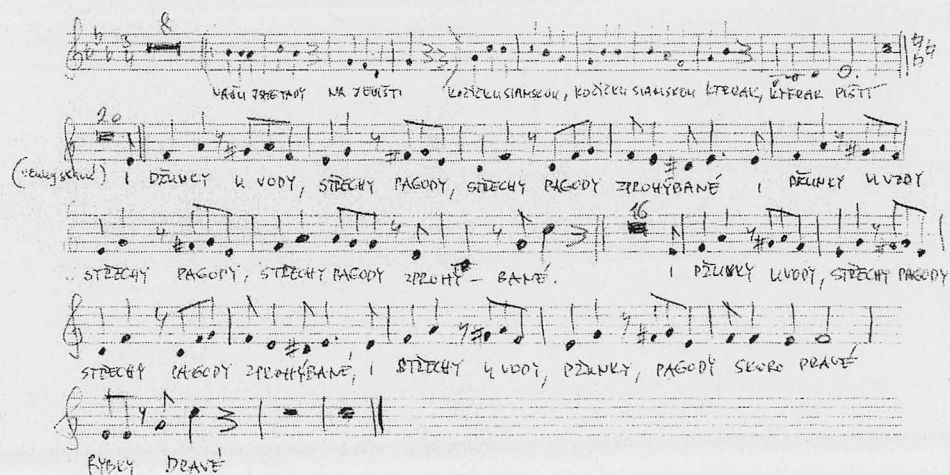 8
NA JEVIŠTI KOČIČKU SIAMSKOU, KOČIČKU SIAMSKOU KTERAK, KTERAK PIŠTÍ
20
I DŽUNKY U VODY, STŘECHY PAGODY, STŘECHY PAGODY ZPROHÝBANÉ I DŽUNKY U VODY
16
STŘECHY PAGODY, STŘECHY PAGODY ZPROHÝ - BANÉ. I DŽUNKY U VODY, STŘECHY PAGODY
STŘECHY PAGODY ZPROHÝBANÉ, I STŘECHY U VODY, DŽUNKY, PAGODY SKORO PRAVÉ
RYBKY DRAVÉ